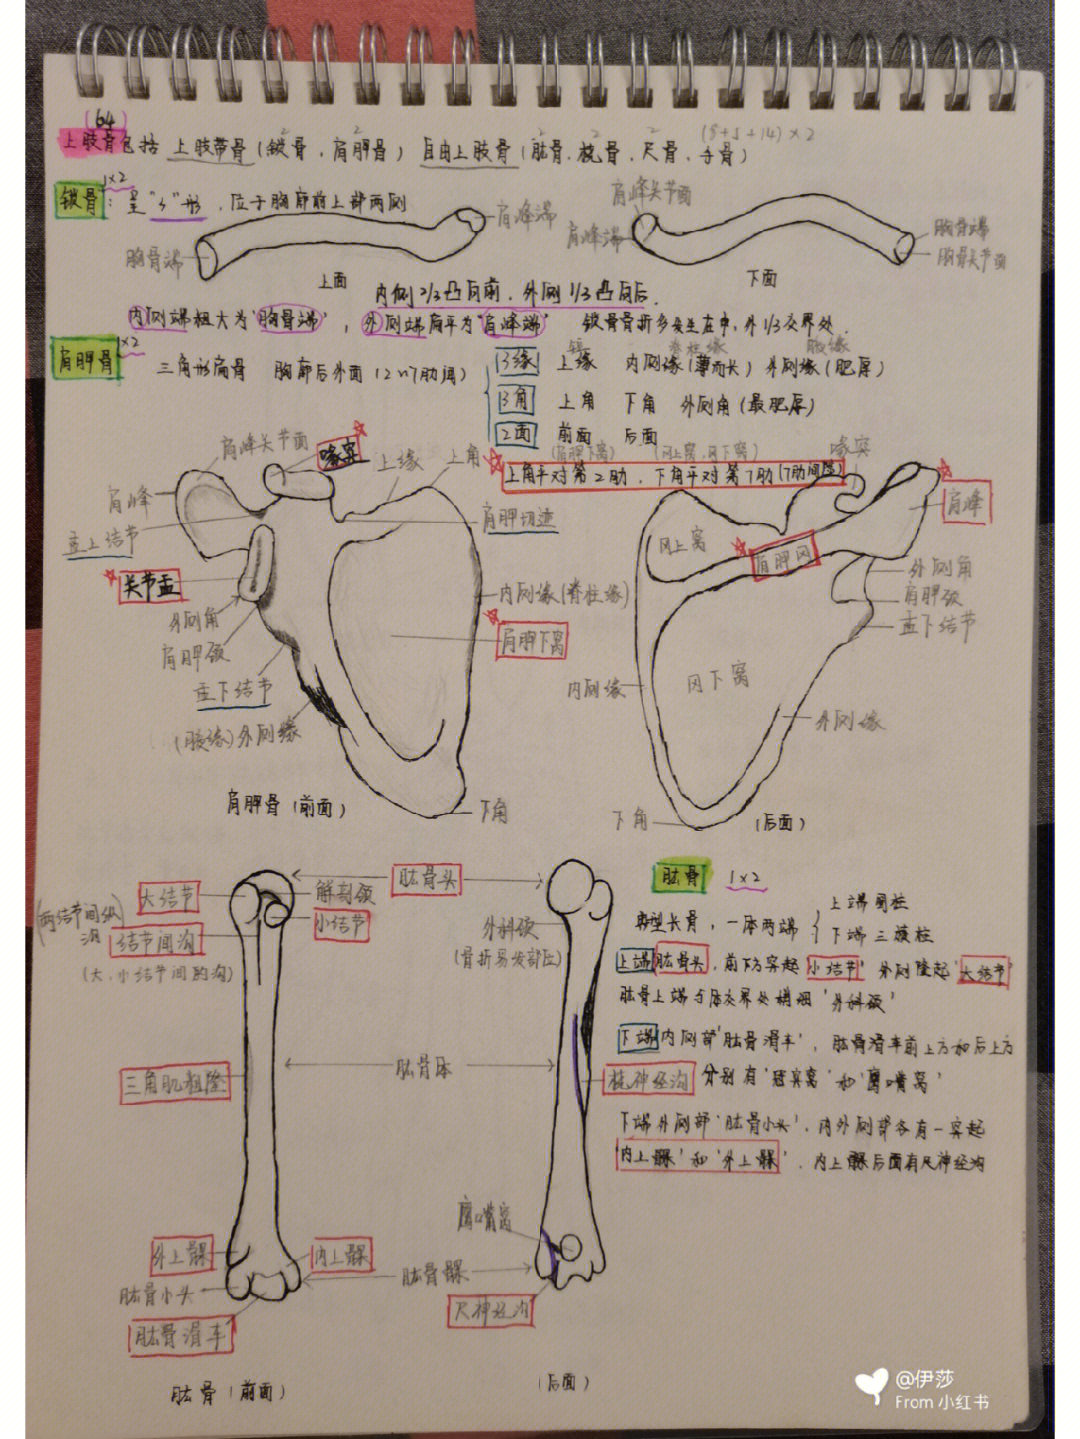 (64)
上肢骨包括 上肢带骨(锁骨,肩胛骨) 自由上肢骨(肱骨,桡骨,尺骨,手骨)
2 2 2 2 2 (8+5+14)×2
锁骨 1×2 : 呈"S"形,位于胸廓前上部两侧
肩峰端
胸骨端
上面
肩峰关节面
肩峰端
胸骨端
胸骨关节面
下面
内侧2/3凸向前,外侧1/3凸向后.
内侧端粗大为"胸骨端",外侧端扁平为"肩峰端" 锁骨骨折多发生在中,外1/3交界处.
肩胛骨 1×2 三角形扁骨 胸廓后外面(2~7肋间)
脊柱缘 腋缘
3缘 上缘 内侧缘(薄而长) 外侧缘(肥厚)
3角 上角 下角 外侧角(最肥厚)
2面 前面 后面
(肩胛下窝) (冈上窝,冈下窝)
上角平对第2肋,下角平对第7肋(7肋间隙)
肩峰关节面
喙突
上缘
上角
肩峰
盂上结节
肩胛切迹
关节盂
内侧缘(脊柱缘)
外侧角
肩胛下窝
肩胛颈
盂下结节
(腋缘)外侧缘
肩胛骨(前面)
下角
喙突
肩峰
冈上窝
肩胛冈
外侧角
肩胛颈
盂下结节
内侧缘
冈下窝
外侧缘
下角
(后面)
大结节
解剖颈
肱骨头
小结节
(两结节间纵沟)
结节间沟
(大,小结节间的沟)
外科颈
(骨折易发部位)
三角肌粗隆
肱骨体
桡神经沟
外上髁
内上髁
肱骨小头
肱骨滑车
肱骨髁
鹰嘴窝
尺神经沟
肱骨(前面)
(后面)
肱骨 1×2
典型长骨,一体两端 { 上端圆柱
下端三棱柱
上端 肱骨头,前下方突起'小结节' 外侧隆起'大结节'
肱骨上端与体交界处稍细'外科颈'
下端 内侧部'肱骨滑车',肱骨滑车前上方和后上方
分别有'冠突窝'和'鹰嘴窝'
下端外侧部'肱骨小头',内外侧部各有一突起
'内上髁'和'外上髁',内上髁后面有尺神经沟
@伊莎
From 小红书